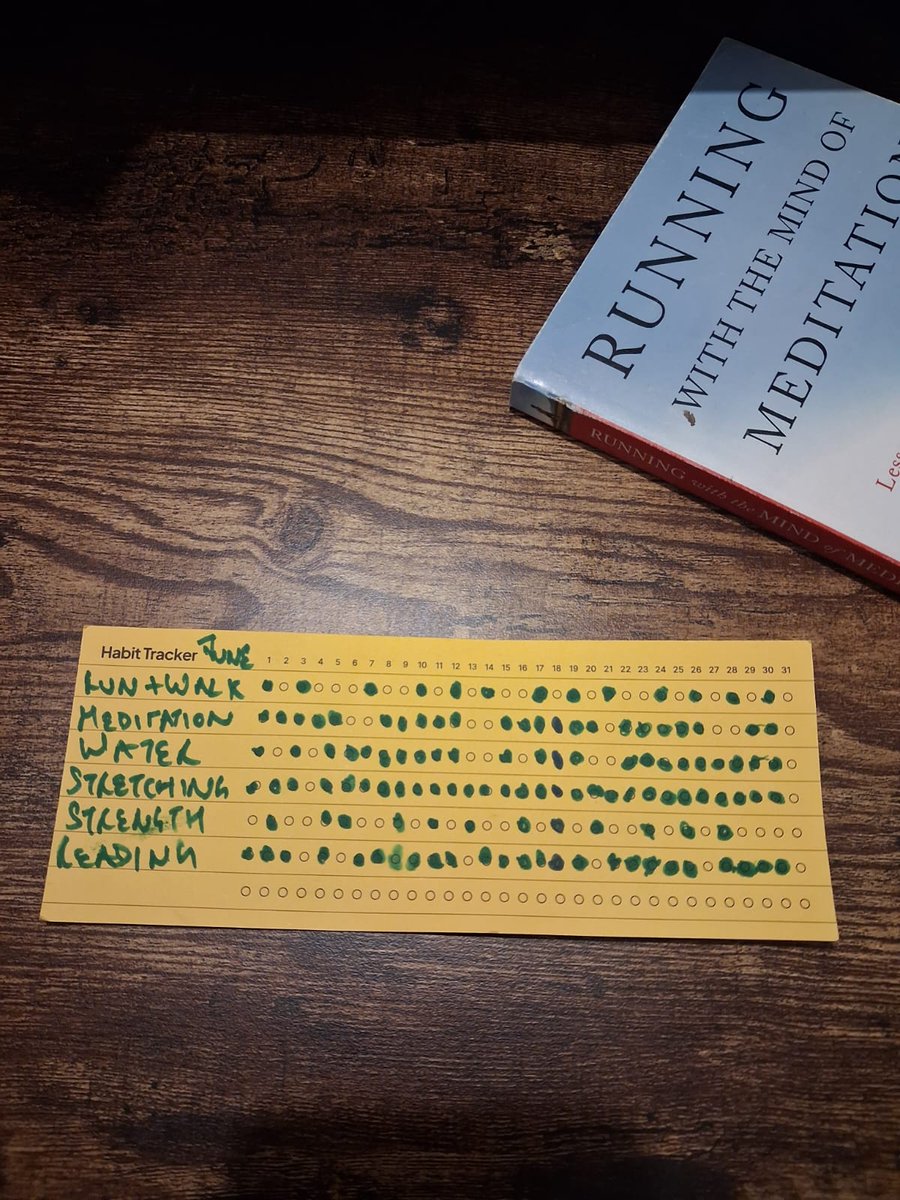 RUNNING
WITH THE MIND OF
MEDITATION
Less
RUNNING with the MIND of MEDI
Habit Tracker JUNE
1 2 3 4 5 6 7 8 9 10 11 12 13 14 15 16 17 18 19 20 21 22 23 24 25 26 27 28 29 30 31
RUN + WALK
MEDITATION
WATER
STRETCHING
STRENGTH
READING